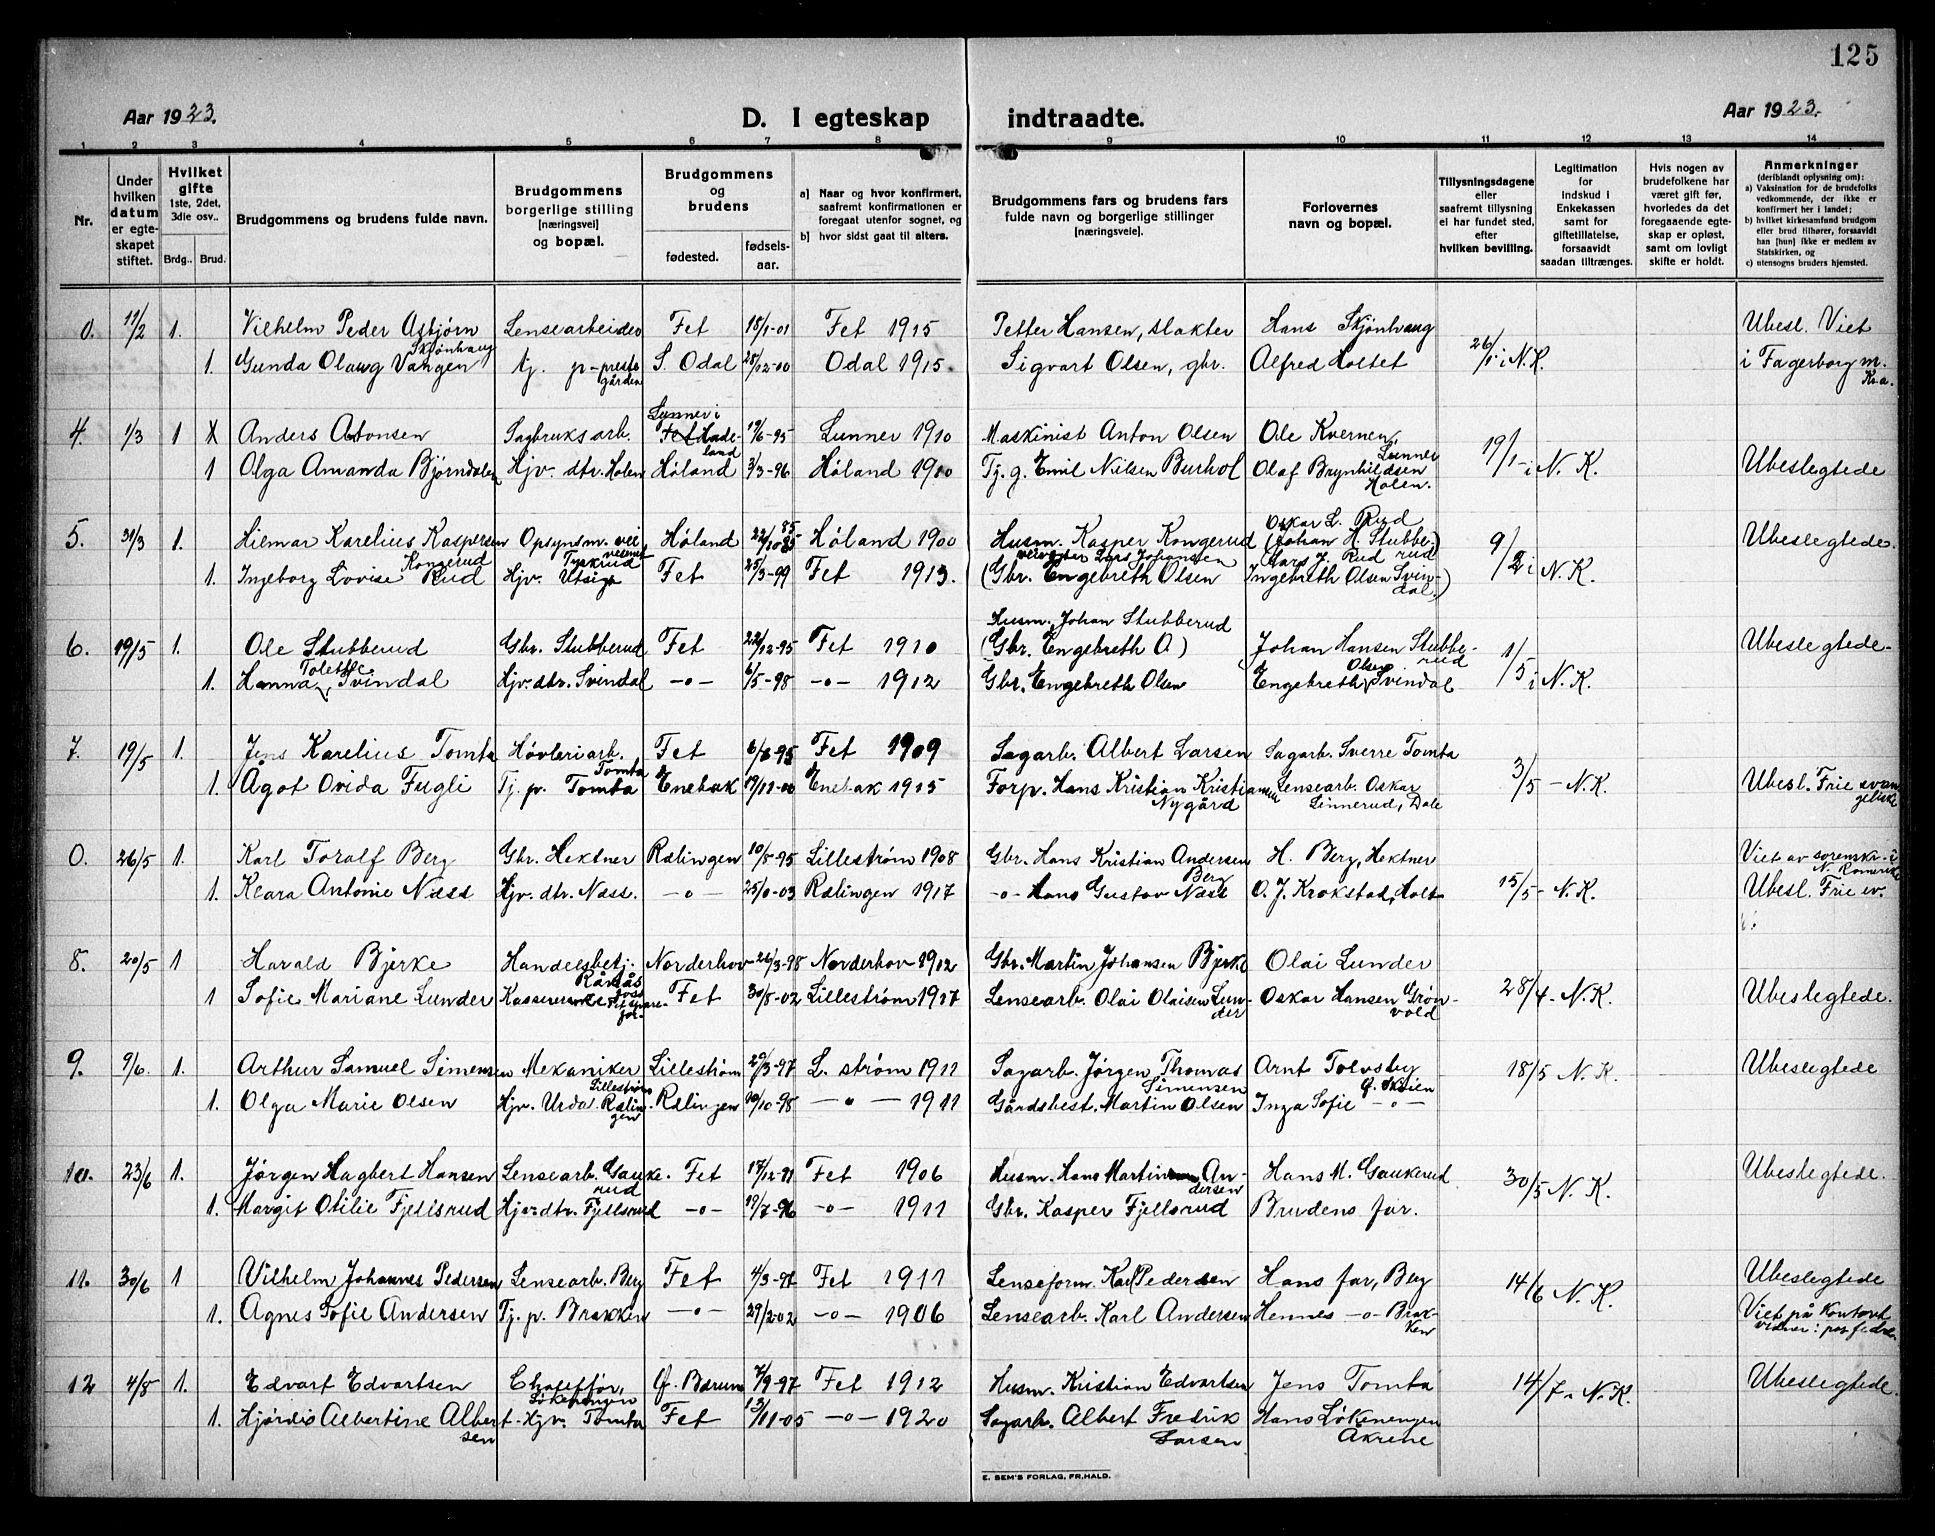 125
Aar 1923.
D. I egteskap indtraadte.
Aar 1923.
1 2 3 4 5 6 7 8 9 10 11 12 13 14
Nr.
Under hvilken datum er egteskapet stiftet.
Hvilket gifte 1ste, 2det, 3die osv..
Brdg.. Brud.
Brudgommens og brudens fulde navn.
Brudgommens borgerlige stilling [næringsvei] og bopæl.
Brudgommens og brudens
fødested.
fødsels-aar.
a] Naar og hvor konfirmert, saafremt konfirmationen er foregaat utenfor sognet, og
b] hvor sidst gaat til alters.
Brudgommens fars og brudens fars fulde navn og borgerlige stillinger [næringsveie].
Forlovernes navn og bopæl.
Tillysningsdagene eller saafremt tillysning ei har fundet sted, efter hvilken bevilling.
Legitimation for indskud i Enkekassen samt for giftetilladelse, forsaavidt saadan tiltrænges.
Hvis nogen av brudefolkene har været gift før, hvorledes da det foregaaende egteskap er opløst, samt om lovligt skifte er holdt.
Anmerkninger (deriblandt oplysning om):
a) Vaksination for de brudefolks vedkommende, der ikke er konfirmert her i landet;
b) hvilket kirkesamfund brudgom eller brud tilhører, forsaavidt han [hun] ikke er medlem av Statskirken, og
c) utensogns bruders hjemsted.
0. 11/2 1. Vilhelm Peder Asbjørn Skjønhaug Lensearbeider Fet 18/1-01 Fet 1915 Petter Hansen, slakter Hans Skjønhaug 26/1 i N.K. Ubesl. Viet
1. Gunda Olaug Vangen tj. p. prestegården S. Odal 28/12-00 Odal 1915. Sigvart Olsen, gbr. Alfred Holtet i Fagerborg m. Kr.a.
4. 1/3 1 X Anders Antonsen Sagbruksarb. Lunner i Hadeland 19/6-95 Lunner 1910 Maskinist Anton Olsen Ole Kvernen, Lunner 19/1 - i N.K.
1 Olga Amanda Bjørndalen Hjv. dtr. Holen Høland 3/3-96 Høland 1910 Tj. g. Emil Nilsen Burhol Olaf Brynhildsen Holen. Ubeslegtede
5. 31/3 1. Hilmar Karelius Kaspersen Kongerud Opsynsm. ved veiene Høland 22/10-85 Høland 1900 Husm. Kasper Kongerud Oskar L. Rud (Johan H. Stubberud) 9/2 i N.K. Ubeslegtede.
1. Ingeborg Lovise Rud Hjv. Fet 25/3-99 Fet 1913. Lars Johansen (Gbr. Engebreth Olsen Lars J. Rud Ingebreth Olsen Svindal.)
6. 19/5 1. Ole Stubberud Gbr. Stubberud Fet 22/12-95 Fet 1910 Husm. Johan Stubberud (Gbr. Engebreth O) Johan Hansen Stubberud 1/5 i N.K. Ubeslegtede.
1. Hanna Tolette Svindal Hjv. dtr. Svindal -o- 6/5-98 -o- 1912 Gbr. Engebreth Olsen Engebreth Olsen Svindal
7. 19/5 1. Jens Karelius Tomta Høvleriarb. Tomta Fet 6/8-95 Fet 1909 Sagarb. Albert Larsen Sagarb. Sverre Tomta 3/5 - N.K.
1. Ågot Ovida Fugli Tj. p. Tomta Enebak 19/11-00 Enebak 1915 Forp. Hans Kristian Kristiansen Nygård Lensearb. Oskar Linnerud, Dale Ubesl. Frie evangeliske
0. 26/5 1. Karl Toralf Berg Gbr. Hektner Rælingen 10/8-95 Lillestrøm 1908 Gbr. Hans Kristian Andersen Berg H. Berg, Hektner 15/5 - N.K. Viet av sorenskr. i N. Romerike
1. Klara Antonie Næss Hjv. dtr. Næss. -o- Rælingen 1917 -o- Hans Gustav Næss O. J. Krokstad, Holt Ubesl. Frie ev.
8. 20/5 1 Harald Bjerke Handelsbetj. Rånås Norderhov 26/3-98 Norderhov 1912 Gbr. Martin Johansen Bjerke Olai Lunder 28/4 - N.K.
1 Sofie Mariane Lunder Fet 30/8-02 Lillestrøm 1917 Lensearb. Olai Olaisen Lunder Oskar Hansen Grønvold Ubeslegtede.
9. 9/6. 1. Arthur Samuel Simensen Mekaniker Lillestrøm Lillestrøm 29/3-97 L. strøm 1911 Sagarb. Jørgen Thomas Simensen Arnt Tolvsby 18/5 N.K. Ubeslegtede
1. Olga Marie Olsen Hjv. Urda Rælingen Rælingen 10/10-98 - o - 1911 Gårdsbest. Martin Olsen Inga Sofie -o-
10. 23/6 1. Jørgen Hagbert Hansen Lensearb. Gaukerud Fet 17/12-91 Fet 1906 Husm. Hans Martin Andersen Hans M. Gaukerud 30/5 N.K. Ubeslegtede.
1. Margit Otilie Fjellsrud Hjv. dtr. Fjellsrud -o- 19/7-96 -o- 1911 Gbr. Kasper Fjellsrud Brudens far.
11. 30/6 1 Vilhelm Johannes Pedersen Lensearb. Berg Fet 4/3-97 Fet 1911 Lenseform. Karl Pedersen Hans far, Berg 14/6 N.K. Ubeslegtede
1. Agnes Sofie Andersen Tj. p. Brakken -o- 29/2-02 -o- 1906 Lensearb. Karl Andersen Hennes -o- Brakken Viet på kontoret vidner: par fedre
12 4/8 1. Edvart Edvartsen Chauffør, Løkeningen Ø. Bærum 7/9-97 Fet 1912 Husm. Kristian Edvartsen Jens Tomta 14/7 N.K. Ubeslegtede.
1. Hjørdis Albertine Albertsen Hjv. Tomta Fet 13/11-05 -o- 1920 Sagarb. Albert Fredrik Larsen Hans Løkeningen Åkrene
E. SEM'S FORLAG, FR.HALD.